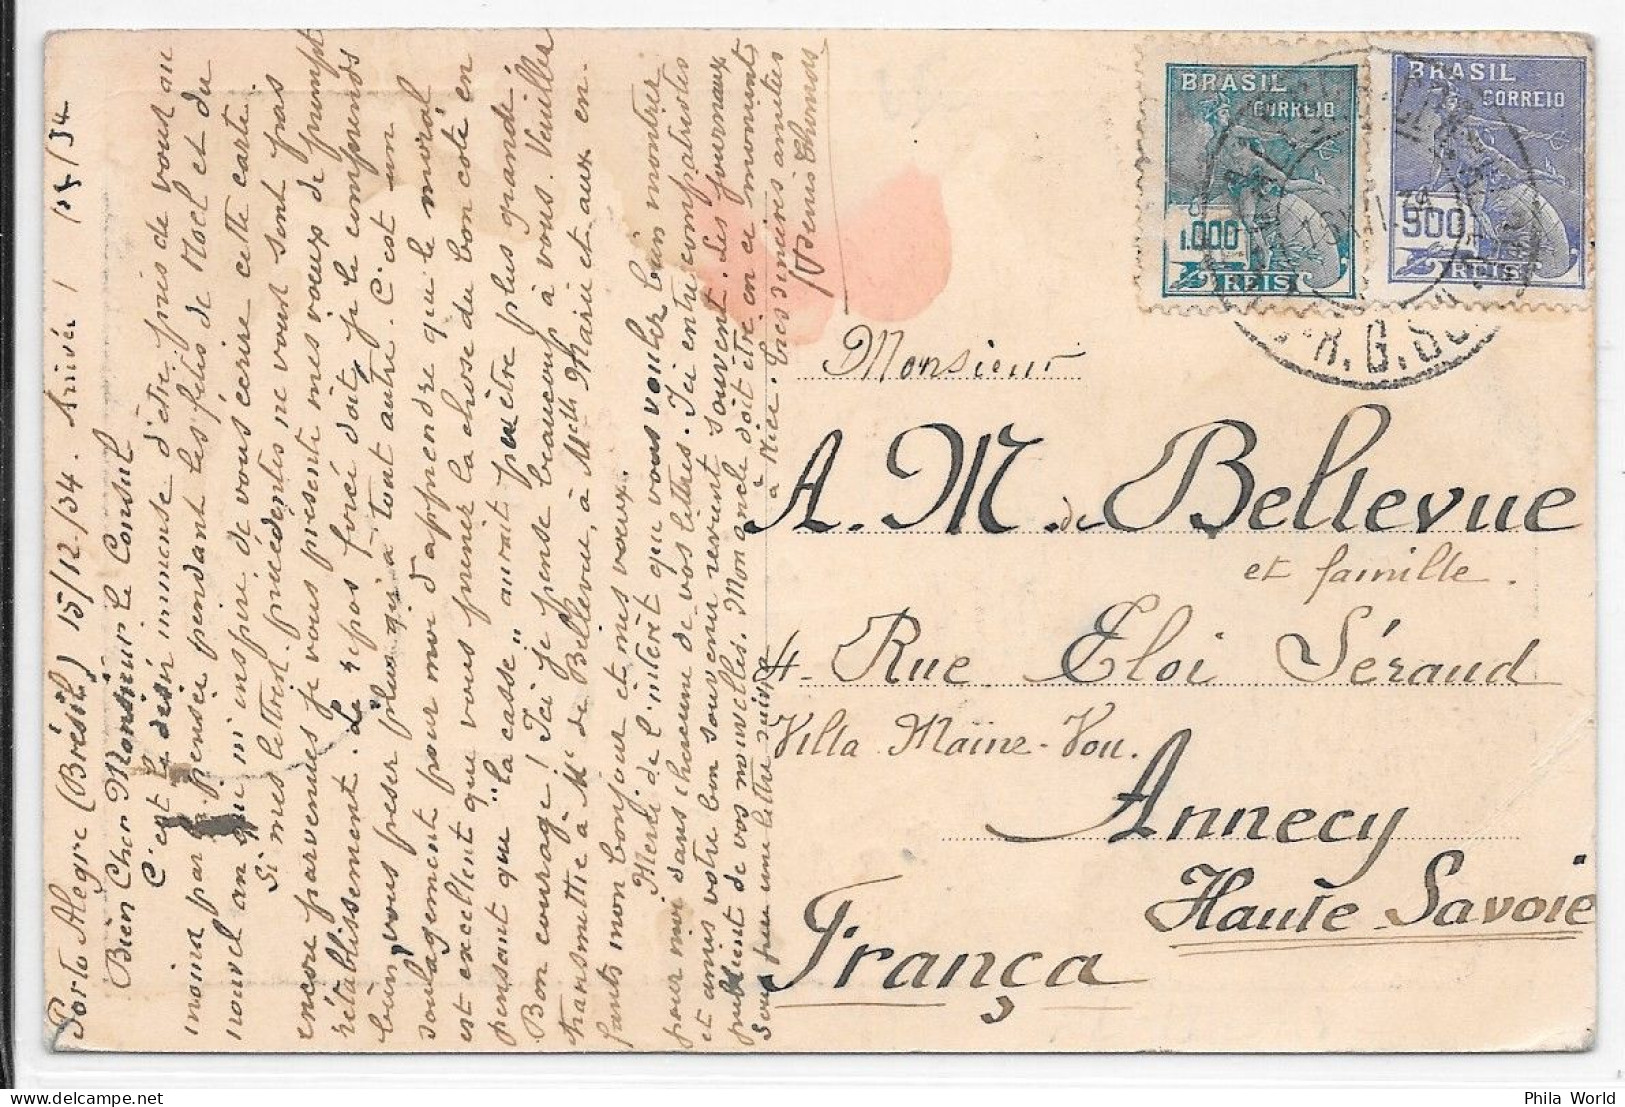 Porto Alegre (Brésil) 15/12/34. Arrivée 1
Bien Cher Monsieur le Consul
C'est le désir immense d'être près de vous au
moins par la pensée pendant les fêtes de Noel et du
nouvel an qui m'inspire de vous écrire cette carte.
Si mes lettres précédentes ne vous sont pas
encore parvenues je vous présente mes voeux de prompt
rétablissement. Le repos forcé doit je le comprends
bien, vous peser plus qu'à tout autre. C'est un
soulagement pour moi d'apprendre que le moral
est excellent que vous prenier la chose du bon coté en
pensant que "la casse" aurait pu être plus grande.
Bon courage! Ici je pense beaucoup à vous. Veuillez
transmettre à Me de Bellevue, à Melle Marie et aux en-
fants mon bonjour et mes voeux.
Merci de l'intérêt que vous voulez bien montrer
pour moi dans chacune de vos lettres. Ici entre compatriotes
et amis votre bon souvenir revient souvent. Les Fournaux
publient de vos nouvelles. Mon oncle doit être en ce moment
à Nice. Très sincères amitiés
Denis Thomas
Sera pour une lettre suivre
BRASIL
CORREIO
1.000
REIS
BRASIL
CORREIO
900
REIS
R. G. SUL
Monsieur
A. M. de Bellevue
et famille.
4 Rue Eloi Séraud
Villa Maïne-Vou.
Annecy
Haute Savoie
França
Phila World